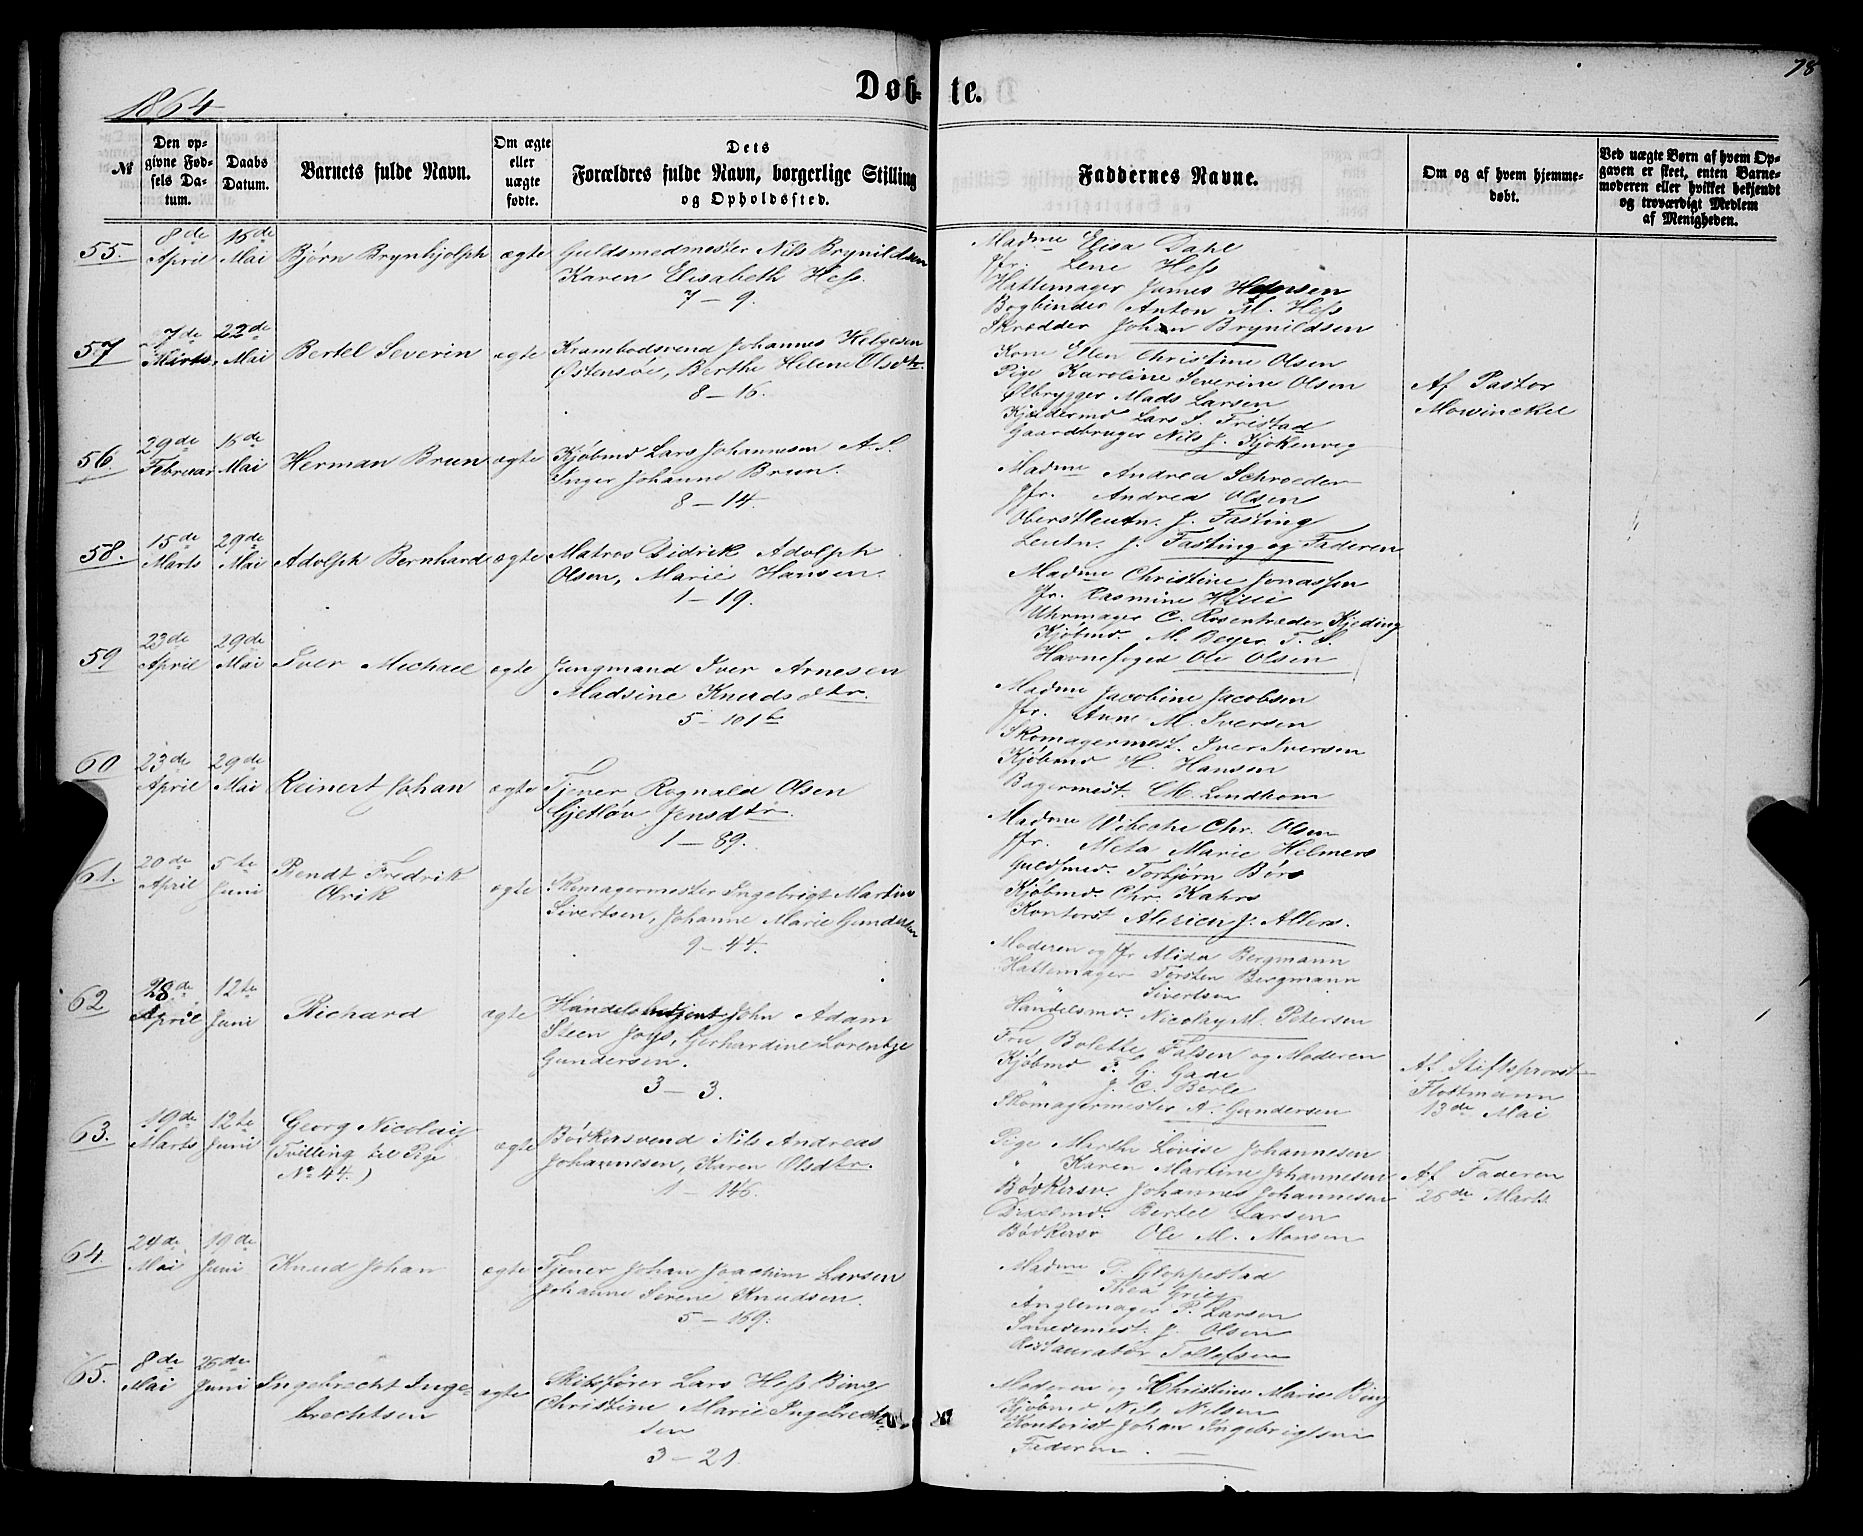 78
1864
Døb- te.
№
Den op-
givne Fød-
sels Da-
tum.
Daabs
Datum.
Barnets fulde Navn.
Om ægte
eller
uægte
fødte.
Dets
Forældres fulde Navn, borgerlige Stilling
og Opholdssted.
Faddernes Navne.
Om og af hvem hjemme-
døbt.
Ved uægte Børn af hvem Op-
gaven er skeet, enten Barne-
moderen eller hvilket bekjendt
og troværdigt Medlem
af Menigheden.
55.
8de
April
16de
Mai
Bjørn Brynhjolph
ægte
Guldsmedmester Nils Brynildsen
Karen Elisabeth Hess.
7 – 9.
Madme Elisa Dahl
Jfr. Lene Hess
Hattemager James
Bogbinder Anton M. Hess
Skrædder Johan Brynildsen
57
7de
Marts
22de
Mai
Bertel Severin
ægte
Krambodsvend Johannes Helgesen
Østensøe, Berthe Helene Olsdtr.
8 – 16.
Kone Ellen Christine Olsen
Pige Karoline Severine Olsen
Ølbrygger Mads Larsen
Lars S. Fristad
Gaardbruger Nils J.
Af Pastor
Mowinckel
56
29de
Februar
16de
Mai
Herman Brun
ægte
Kjøbmd Lars Johannesen A. S.
Inger Johanne Brun.
8 – 14.
Madme Andrea Schroeder
Jfr. Andrea Olsen
Oberstleutn. J. Fasting
Leutn. J. Fasting og Faderen
58.
15de
Marts
29de
Mai
Adolph Bernhard
ægte
Matros Didrik Adolph
Olsen, Marie Hansen.
1 – 19.
Madme Christine Jonassen
Jfr. Rasmine
Uhrmager C. Rosentræder Kjeding
Kjøbmd. M. Beyer T. S.
Havnefoged Ole Olsen
59
23de
April
29de
Mai
Iver Michael
ægte
Jungmand Iver Arnesen
Madsine Knudsdtr.
5 – 101b
Madme Jacobine Jacobsen
Jfr. Anne M. Iversen
Skomagermest. Iver Iversen
Kjøbmd H. Hansen
Bagermest. Lindhom
60
23de
April
29de
Mai
Reinert Johan
ægte
Tjener Rognald Olsen
Gjetløv Jensdtr.
1 – 89.
Madme Wibeche Chr. Olsen
Jfr. Meta Marie Helmers
Guldsmed. Torbjørn Børs
Kjøbmd. Chr. Kahrs
Kontorist J. Allers.
61.
20de
April
5te
Juni
Bendt Fredrik
Chrik
ægte
Skomagermester Ingebrigt Martin
Sivertsen, Johanne Marie Gundersen
9 – 44.
Moderen og Jfr Alida Bergmann
Hattemager Torsten Bergmann
Sivertsen
Handelsmd. Nicolay M. Petersen
62
28de
April
12te
Juni
Richard
ægte
Handelsbetjent John Adam
Steen Joys, Gerhardine Lorentze
Gundersen.
3 – 3.
Fru Bolette Falsen og Moderen
Kjøbmd F. G. Gade
J. C. Berle
Skomagermester A. Gundersen
Af Stiftsprovst
Flottmann
13de Mai
63.
19de
Marts
12te
Juni
Georg Nicolay
(Tvilling til Pige
No 44.)
ægte
Bødkersvend Nils Andreas
Johannesen, Karen Olsdtr.
1 – 146.
Pige Marthe Lovise Johannesen
" Karen Martine Johannesen
Bødkersv. Johannes Johannesen
Bertel Larsen
Bødkersv Ole M. Monsen
Af Faderen
25de Marts
64
24de
Mai
19de
Juni
Knud Johan
ægte
Tjener Johan Joachim Larsen
Johanne Serene Knudsen.
5 – 169.
Madme P. Gloppestad
" Thea Grieg
Anglemager P. Larsen
Smedemest. J. Olsen
Restauratør Tollefsen
65.
8de
Mai
26de
Juni
Ingebrecht Inge-
brechtsen
ægte
Skibsfører Lars Hess Bing
Christine Marie Ingebrecht-
sen
3 – 21
Moderen og Christine Marie Bing
Kjøbmd Nils Nilsen
Kontorist Johan Ingebrigtsen
Faderen.